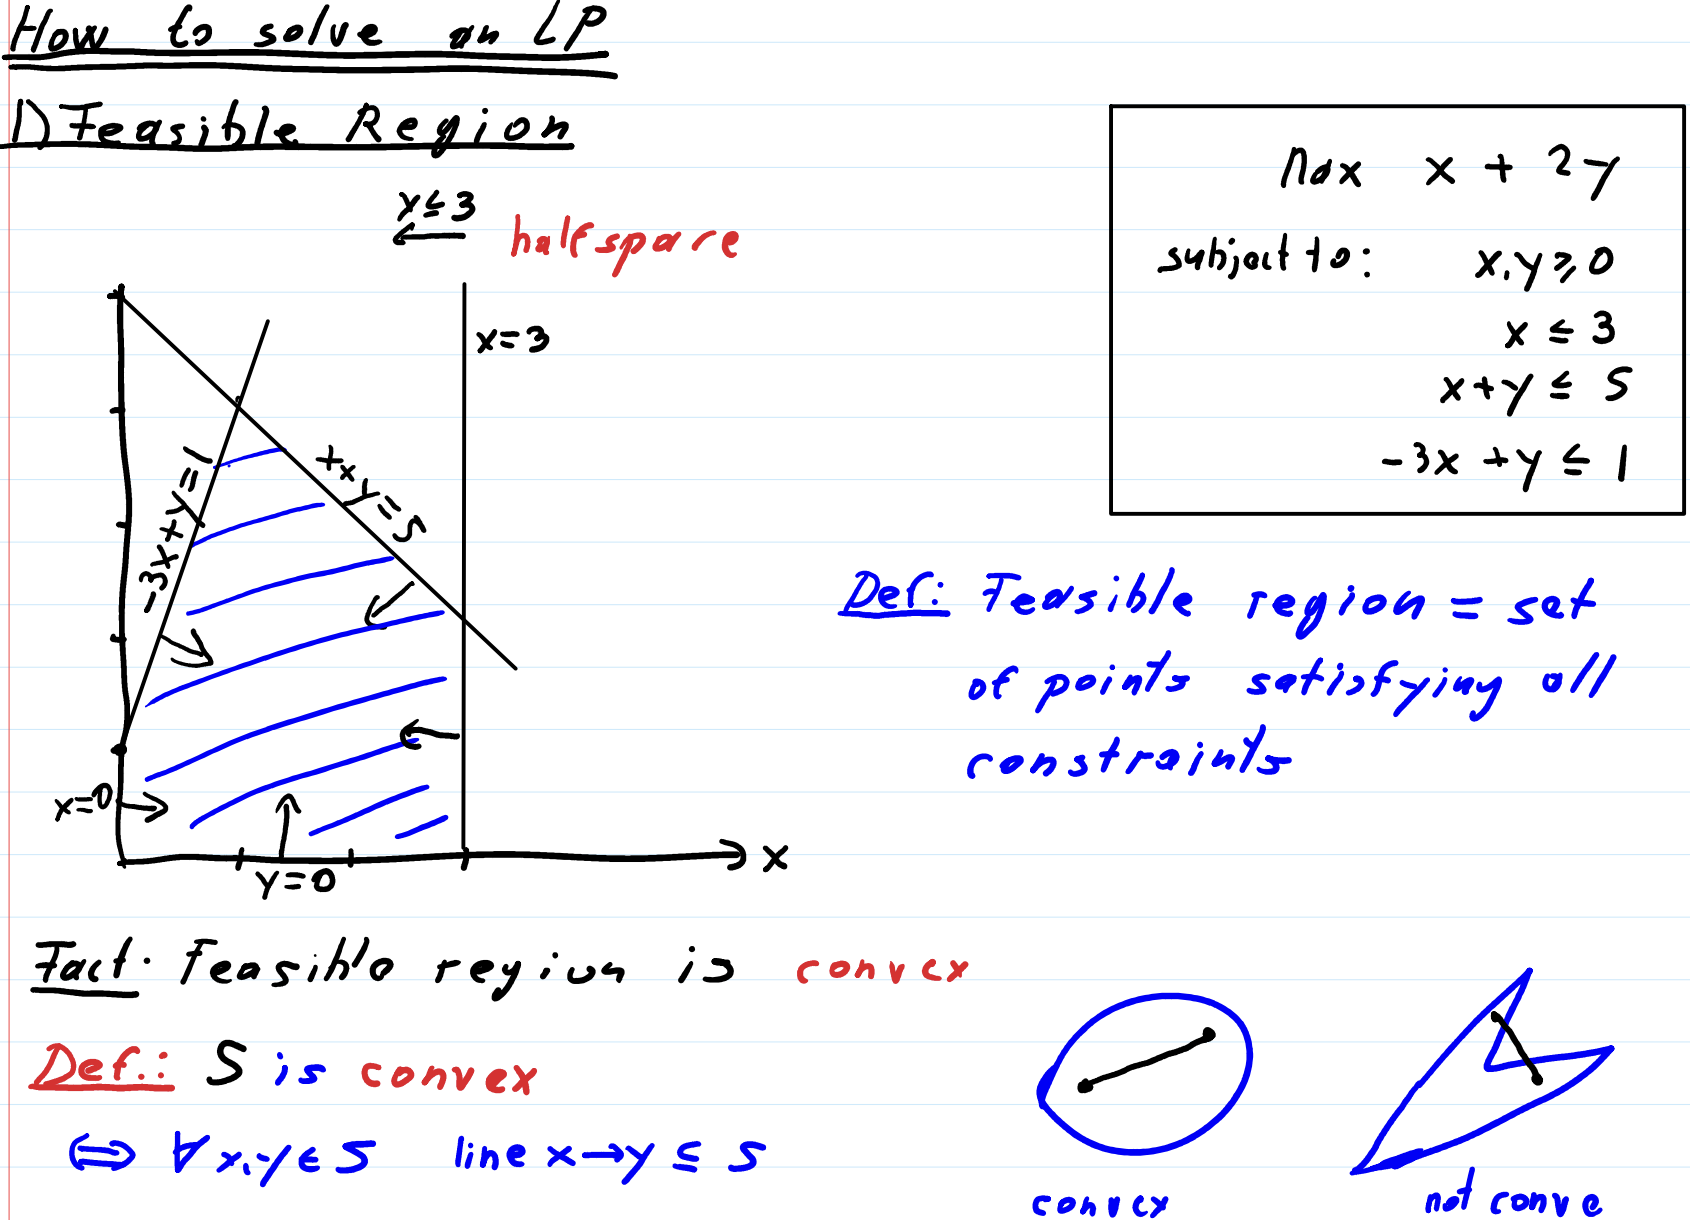 How to solve an LP
1) Feasible Region
x ≤ 3
halfspace
x=3
-3x+y=1
x+y=5
x=0
y=0
x
Max x + 2y
subject to: x,y ≥ 0
x ≤ 3
x+y ≤ 5
-3x + y ≤ 1
Def: Feasible region = set
of points satisfying all
constraints
Fact: Feasible region is convex
Def.: S is convex
⟺ ∀ x,y ∈ S line x→y ⊆ S
convex
not conve